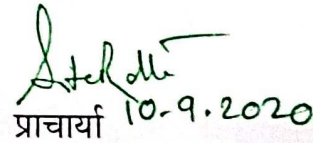 प्राचार्या 10-9.2020